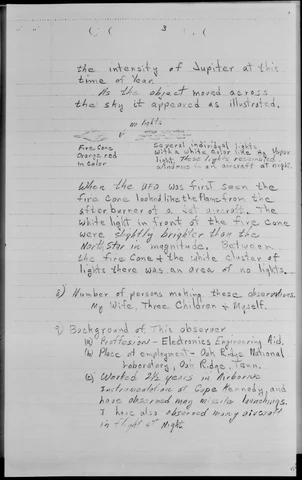 3
the intensity of Jupiter at this
time of Year.
As the object moved across
the sky it appeared as illustrated.
no lights
Fire Cone
Orange red
in Color
Several individual lights
with a white color like Hg Vapor
light. These lights resembled
windows in an aircraft at night.
When the UFO was first seen the
fire cone looked like the flame from the
afterburner of a jet aircraft. The
white light in front of the fire cone
were slightly brighter than the
North Star in magnitude. Between
the fire cone & the white cluster of
lights there was an area of no lights.
8) Number of persons making these observations.
My Wife, Three Children & Myself.
9) Background of This observer
(a) Proffesion - Electronics Engineering Aid.
(b) Place of employment - Oak Ridge National
Laboratory, Oak Ridge, Tenn.
(c) Worked 2½ years in Airborne
Instrumentation at Cape Kennedy, and
have observed many missile launchings.
I have also observed many aircraft
in flight at Night.